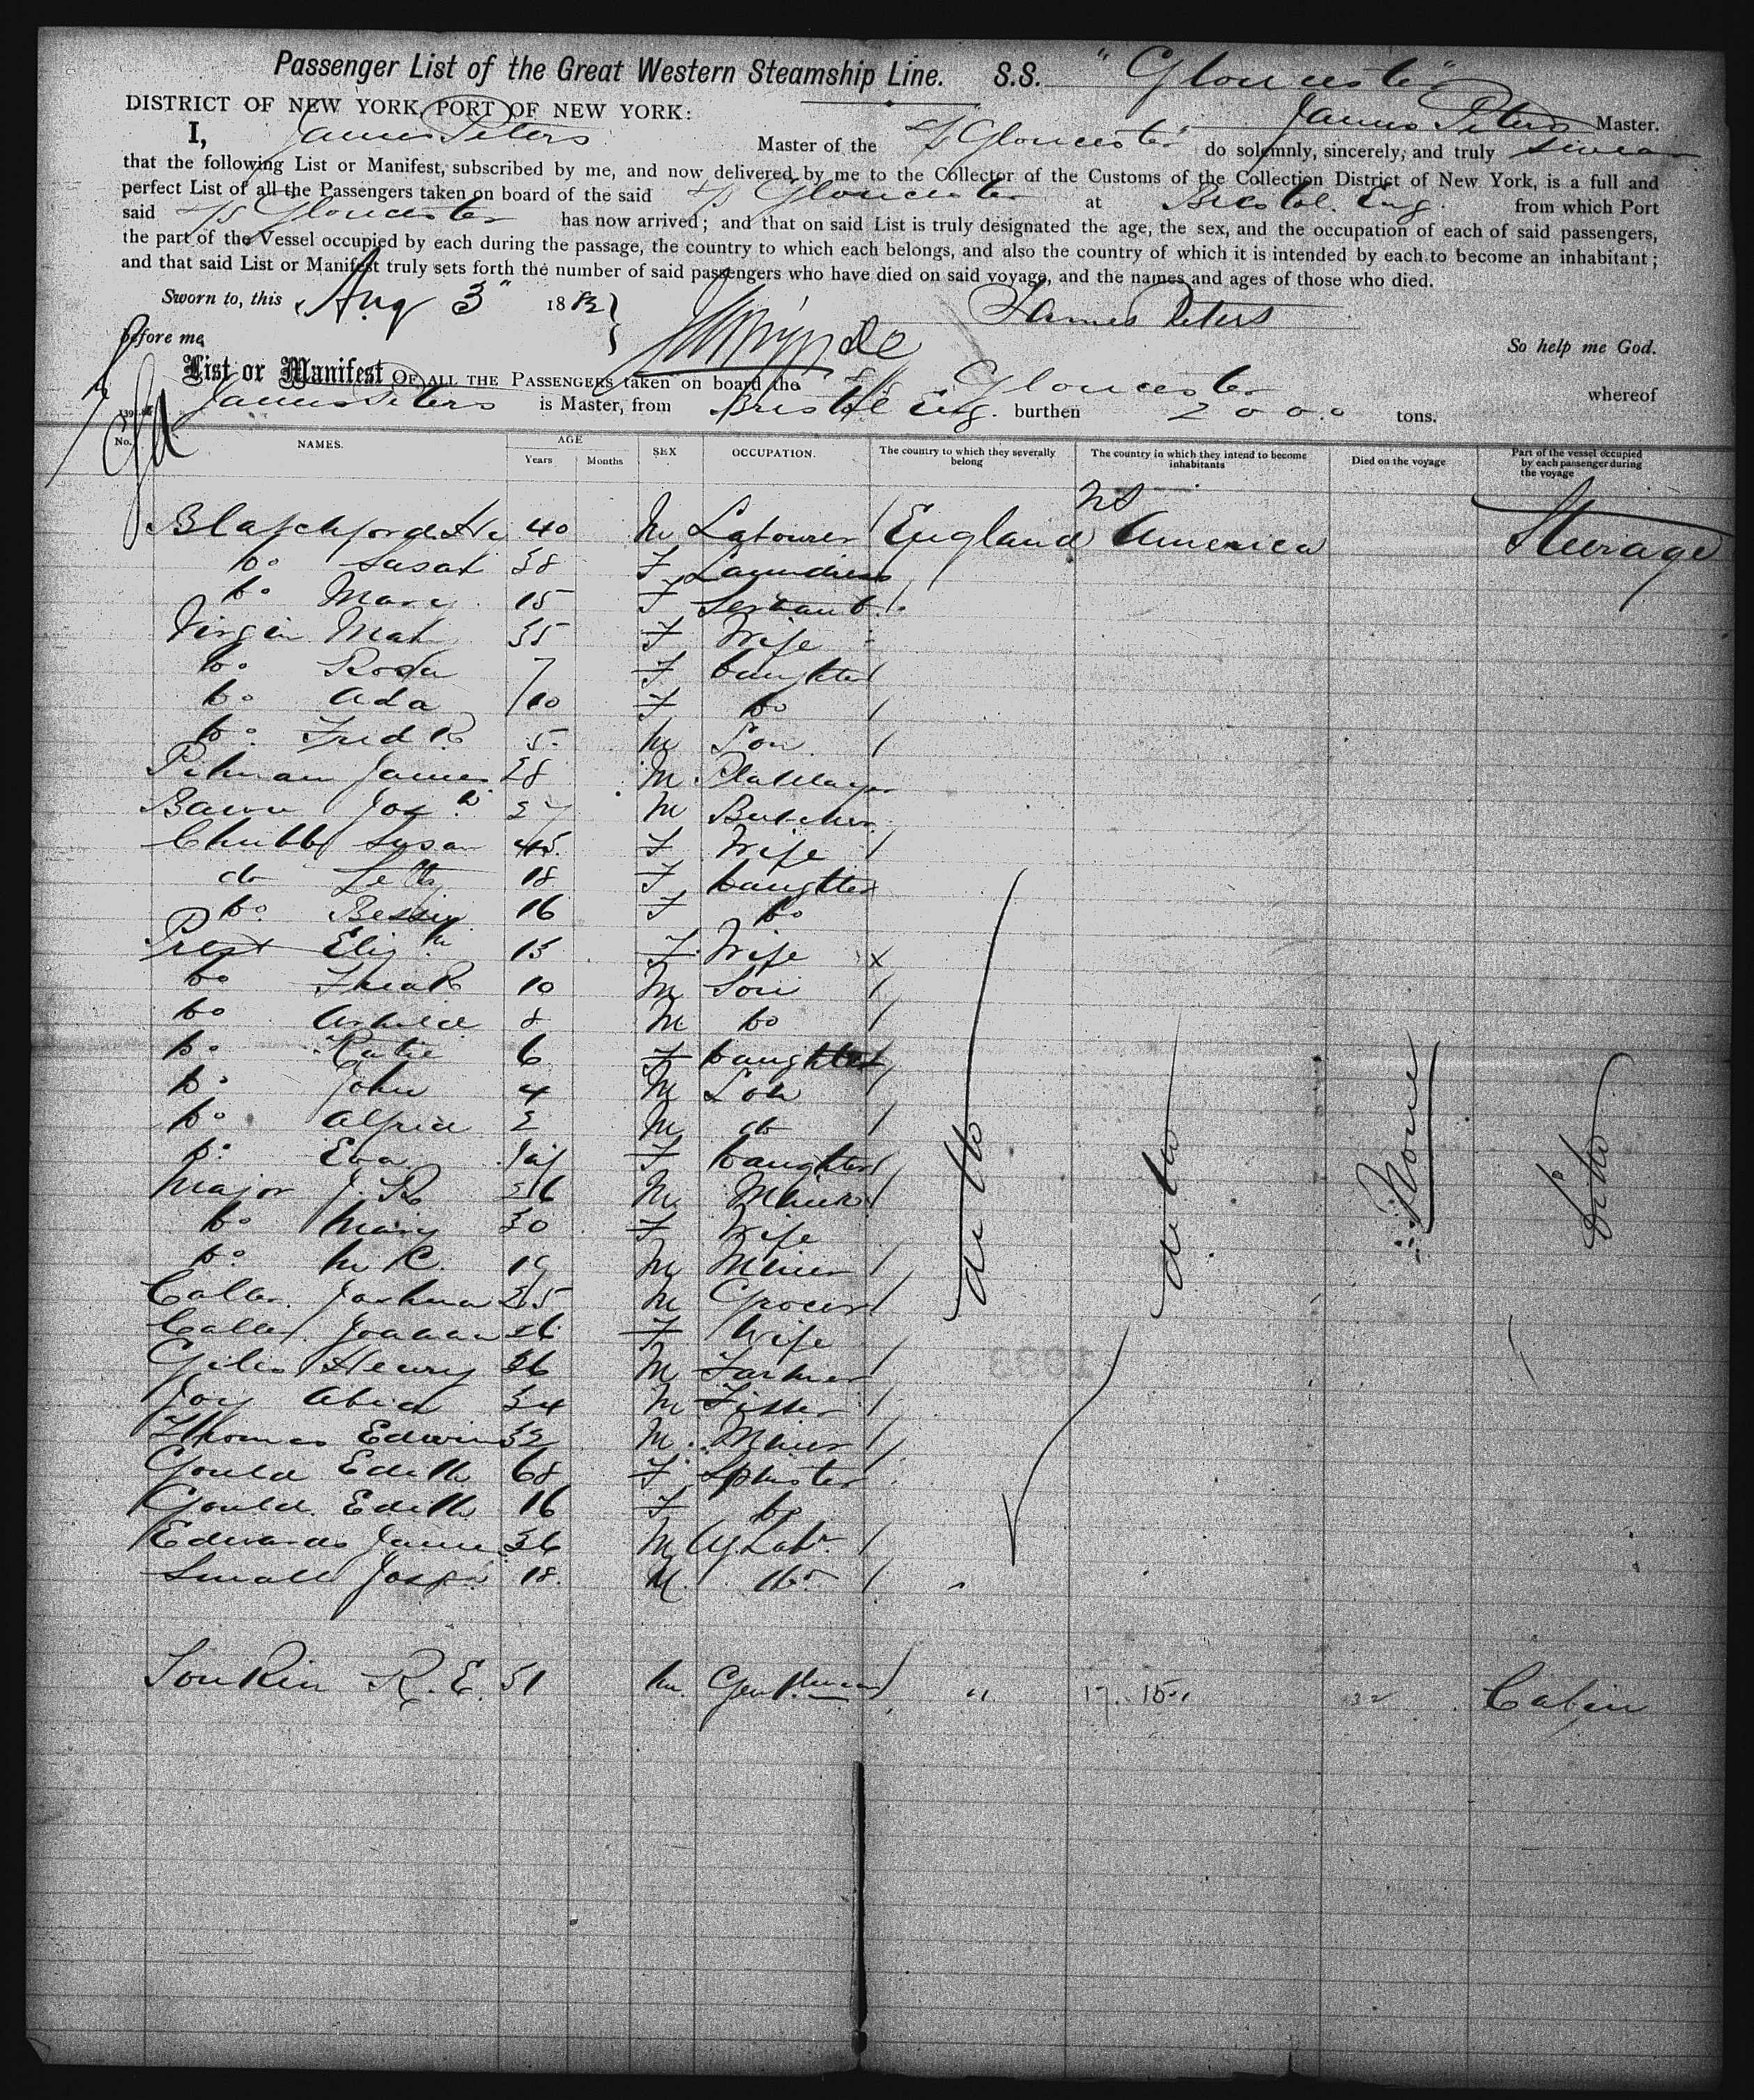 Passenger List of the Great Western Steamship Line. S.S. "Gloucester"
DISTRICT OF NEW YORK, PORT OF NEW YORK: James Peters Master.
I, James Peters Master of the S/S Gloucester do solemnly, sincerely, and truly swear
that the following List or Manifest, subscribed by me, and now delivered by me to the Collector of the Customs of the Collection District of New York, is a full and
perfect List of all the Passengers taken on board of the said S/S Gloucester at Bristol. Eng. from which Port
said S/S Gloucester has now arrived; and that on said List is truly designated the age, the sex, and the occupation of each of said passengers,
the part of the Vessel occupied by each during the passage, the country to which each belongs, and also the country of which it is intended by each to become an inhabitant;
and that said List or Manifest truly sets forth the number of said passengers who have died on said voyage, and the names and ages of those who died.
Sworn to, this Aug 3 188 James Peters
before me, So help me God.
List or Manifest OF ALL THE PASSENGERS taken on board the S/S Gloucester whereof
James Peters is Master, from Bristol Eng. burthen 2000 tons.
No. NAMES. AGE Years Months SEX OCCUPATION. The country to which they severally belong The country in which they intend to become inhabitants Died on the voyage Part of the vessel occupied by each passenger during the voyage
Blatchford 40 M Labourer England America Steerage
Do Susan 38 F Laundress
Do Mary 15 F Servant
Virgin 35 F Wife
Do Rosa 7 F Daughter
Do Ada 10 F Do
Do Fredk 5 M Son
Pitman James 28 M
Jos 27 M Butcher
Chubb Susan 45 F Wife
do 18 F Daughter
Do Bessie 16 F Do
Elizth F Wife
Do 10 M Son
Do 8 M Do
Do Katie 6 F Daughter
Do John 4 M Son
Do Alfred 2 M do
Do Eva F Daughter
Major J. M Miner
Do Mary 30 F Wife
Do 19 M Miner
Joshua M Grocer
Joanna 26 F Wife
Giles Henry 36 M Farmer
Joy 34 M Fitter
Thomas Edwin 32 M Miner
Gould Edith 68 F Spinster
Gould Edith 16 F Do
Edwards James 36 M Ag Labr
Small Joseph 18 M Do
ditto
ditto
None
Ditto
R. E. 51 M Gentleman " 17. 15 32 Cabin